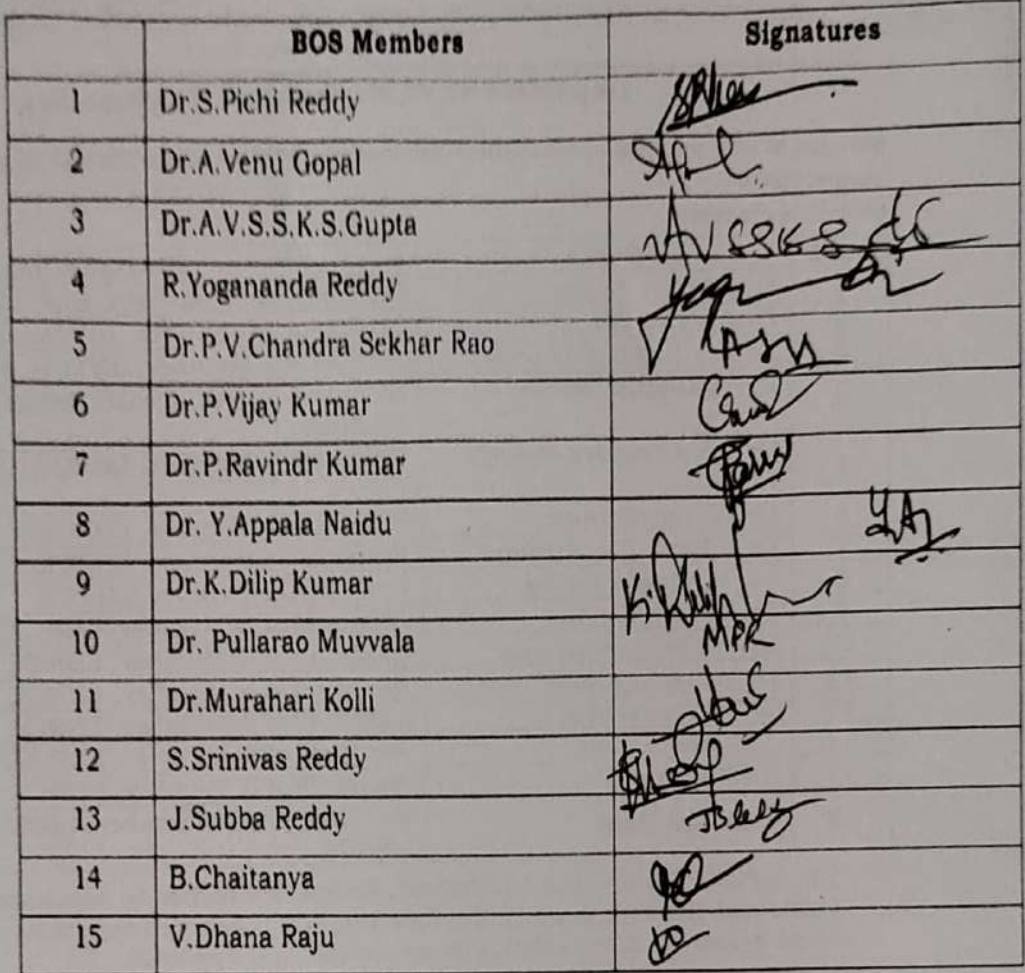 BOS Members Signatures
1 Dr.S.Pichi Reddy
2 Dr.A.Venu Gopal
3 Dr.A.V.S.S.K.S.Gupta AVSSKS
4 R.Yogananda Reddy
5 Dr.P.V.Chandra Sekhar Rao
6 Dr.P.Vijay Kumar
7 Dr.P.Ravindr Kumar
8 Dr. Y.Appala Naidu
9 Dr.K.Dilip Kumar K.Dilip
10 Dr. Pullarao Muvvala MPR
11 Dr.Murahari Kolli
12 S.Srinivas Reddy
13 J.Subba Reddy
14 B.Chaitanya
15 V.Dhana Raju